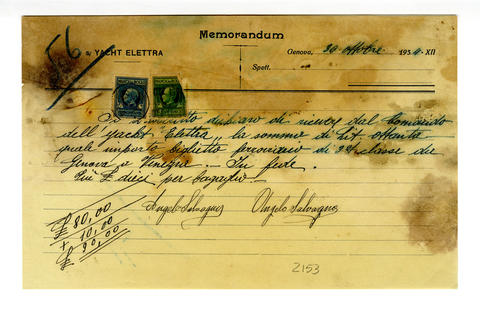 56
Memorandum
S/ YACHT ELETTRA
Genova, 30 ottobre 1934-XII
Spett.
Io dichiaro di ricever dal Comando
dell'Yacht "Elettra" la somma di Lit. ottanta
quale importo biglietto ferroviario di 2ª classe da
Genova a Venezia. - In fede.
Più £ dieci per bagaglio. -
£ 80,00
+ 10,00
£ 90,00
Angelo Salvagno Angelo Salvagno
2153